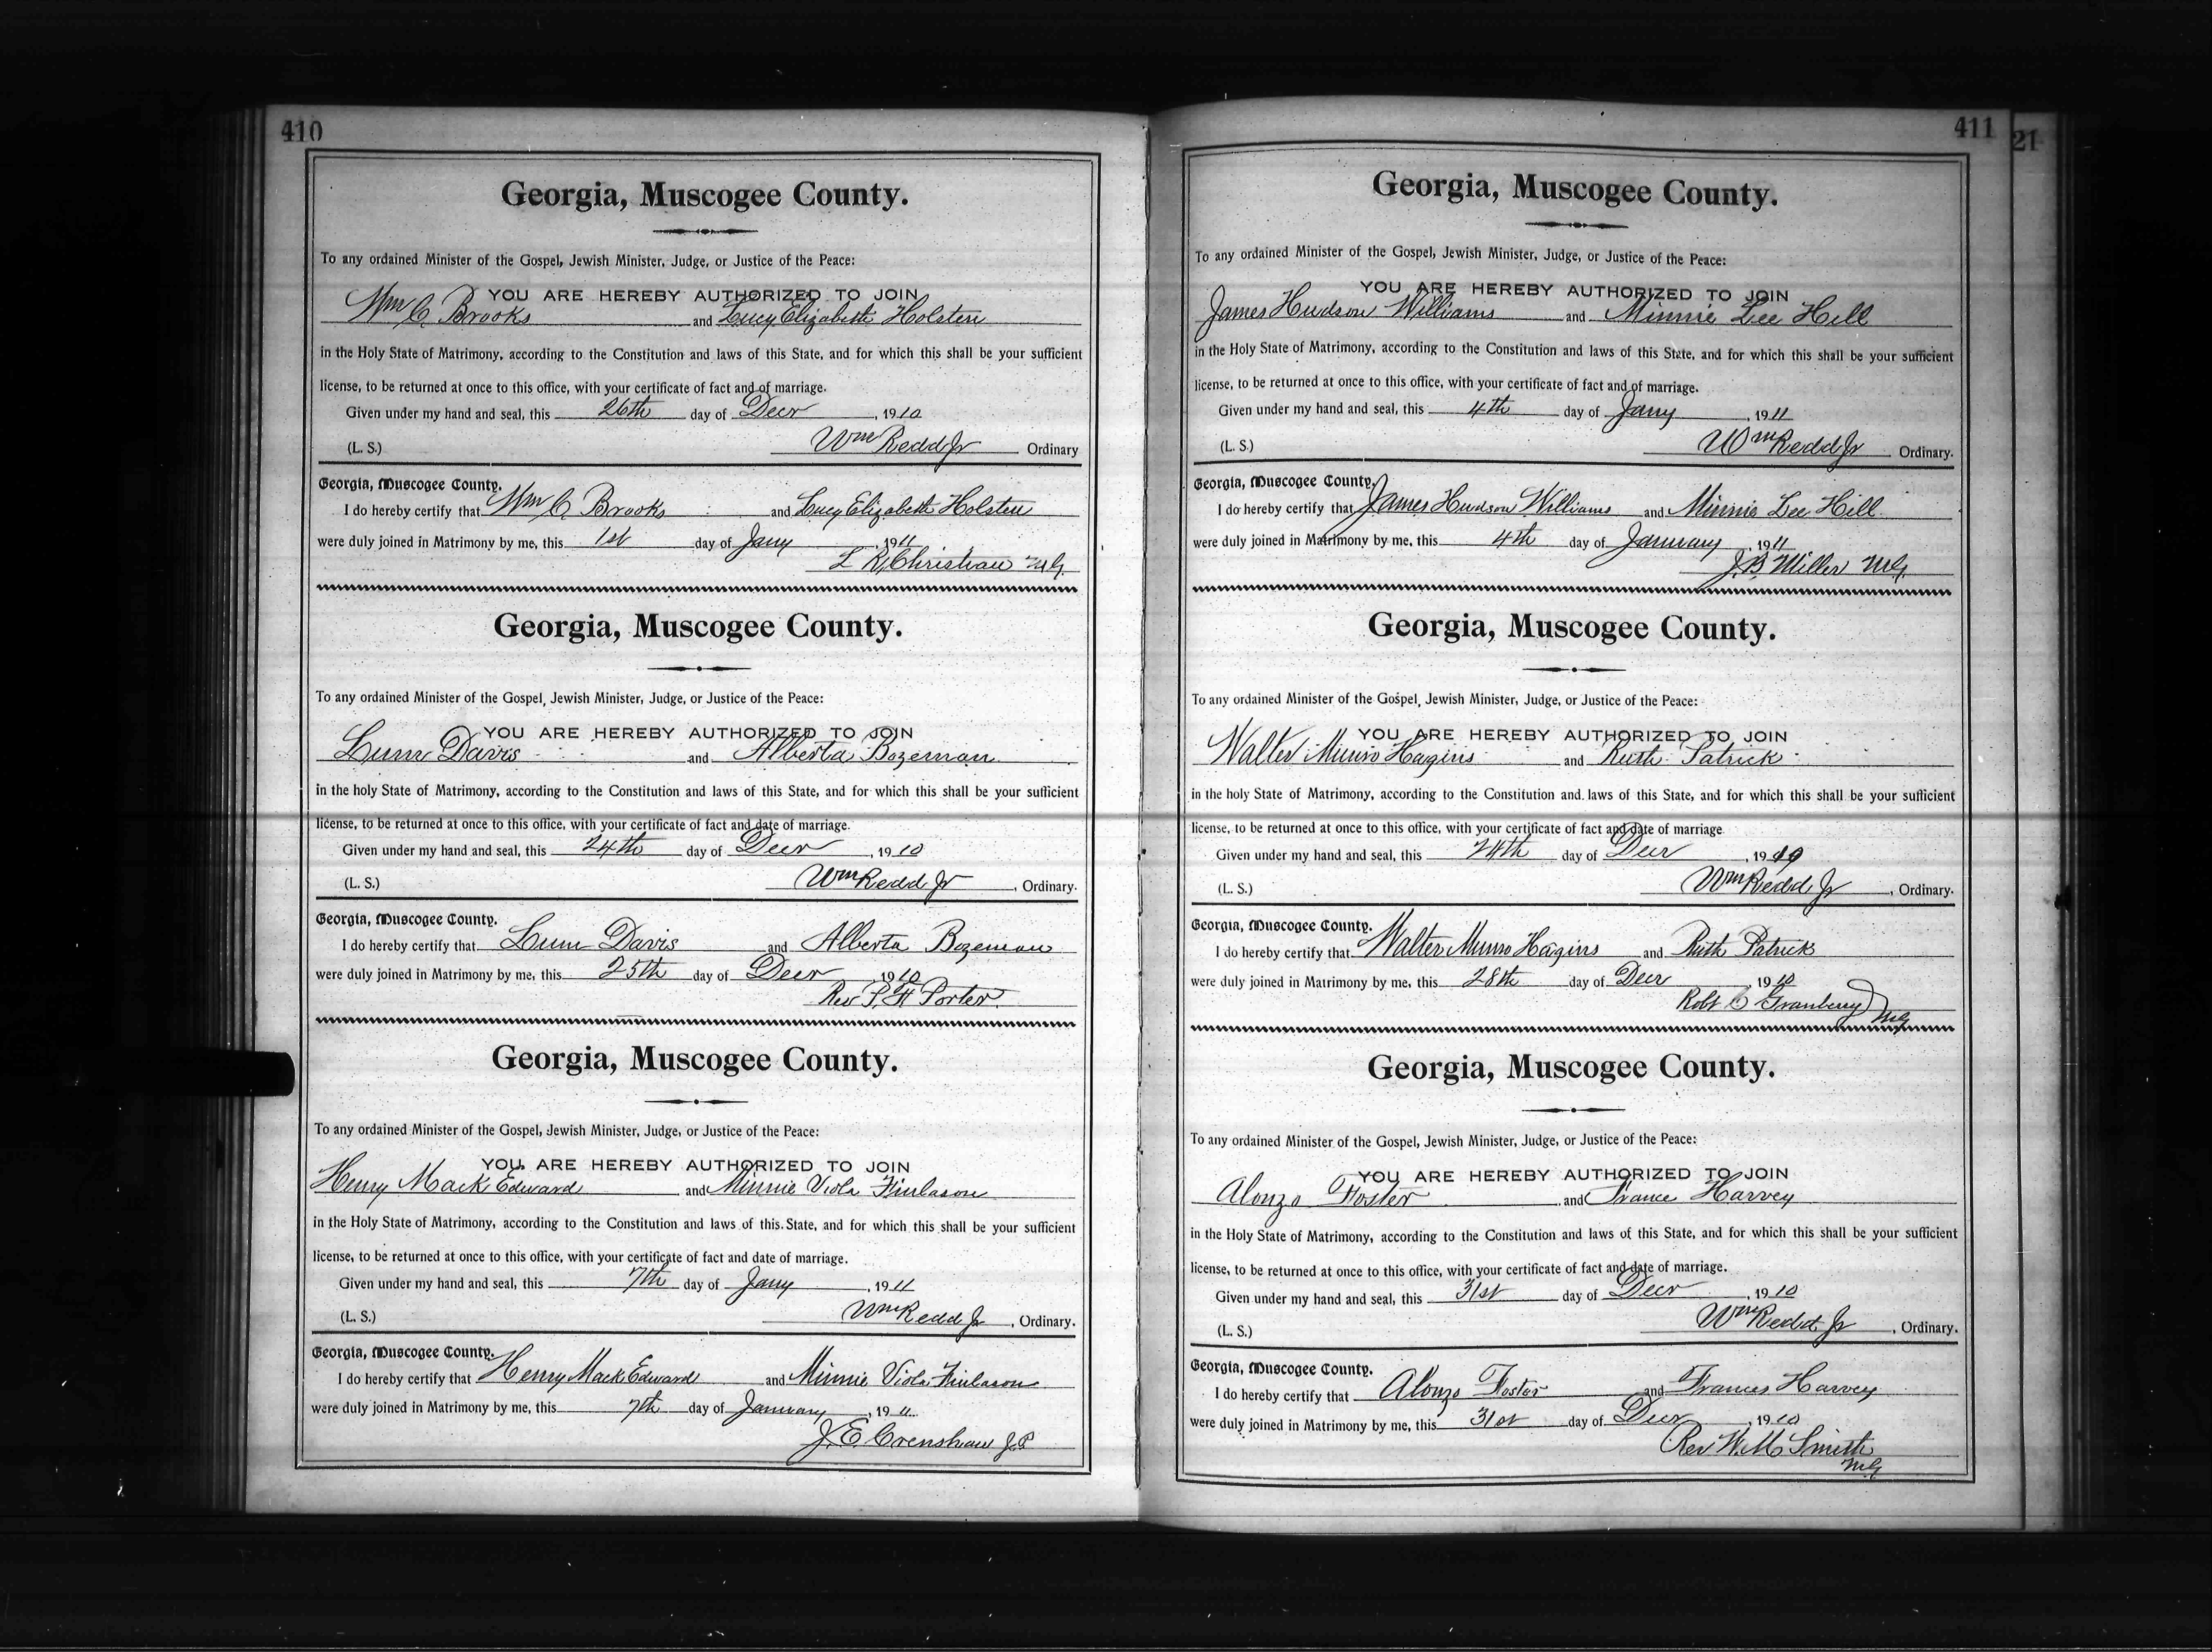 410
Georgia, Muscogee County.
To any ordained Minister of the Gospel, Jewish Minister, Judge, or Justice of the Peace:
YOU ARE HEREBY AUTHORIZED TO JOIN
Wm C. Brooks and Lucy Elizabeth Holsten
in the Holy State of Matrimony, according to the Constitution and laws of this State, and for which this shall be your sufficient
license, to be returned at once to this office, with your certificate of fact and of marriage.
Given under my hand and seal, this 26th day of Decr, 1910
(L. S.) Wm Redd Jr Ordinary
Georgia, Muscogee County.
I do hereby certify that Wm C. Brooks and Lucy Elizabeth Holsten
were duly joined in Matrimony by me, this 1st day of Jany, 1911
L R Christian M.G.
Georgia, Muscogee County.
To any ordained Minister of the Gospel, Jewish Minister, Judge, or Justice of the Peace:
YOU ARE HEREBY AUTHORIZED TO JOIN
Lum Davis and Alberta Bozeman
in the holy State of Matrimony, according to the Constitution and laws of this State, and for which this shall be your sufficient
license, to be returned at once to this office, with your certificate of fact and date of marriage.
Given under my hand and seal, this 24th day of Decr, 1910
(L. S.) Wm Redd Jr, Ordinary.
Georgia, Muscogee County.
I do hereby certify that Lum Davis and Alberta Bozeman
were duly joined in Matrimony by me, this 25th day of Decr, 1910
Rev P. H Porter
Georgia, Muscogee County.
To any ordained Minister of the Gospel, Jewish Minister, Judge, or Justice of the Peace:
YOU ARE HEREBY AUTHORIZED TO JOIN
Henry Mack Edward and Minnie Viola Finlason
in the Holy State of Matrimony, according to the Constitution and laws of this State, and for which this shall be your sufficient
license, to be returned at once to this office, with your certificate of fact and date of marriage.
Given under my hand and seal, this 7th day of Jany, 1911
(L. S.) Wm Redd Jr, Ordinary.
Georgia, Muscogee County.
I do hereby certify that Henry Mack Edward and Minnie Viola Finlason
were duly joined in Matrimony by me, this 7th day of January, 1911.
J. E. Crenshaw J.P
411
21
Georgia, Muscogee County.
To any ordained Minister of the Gospel, Jewish Minister, Judge, or Justice of the Peace:
YOU ARE HEREBY AUTHORIZED TO JOIN
James Hudson Williams and Minnie Lee Hill
in the Holy State of Matrimony, according to the Constitution and laws of this State, and for which this shall be your sufficient
license, to be returned at once to this office, with your certificate of fact and of marriage.
Given under my hand and seal, this 4th day of Jany, 1911
(L. S.) Wm Redd Jr Ordinary.
Georgia, Muscogee County.
I do hereby certify that James Hudson Williams and Minnie Lee Hill
were duly joined in Matrimony by me, this 4th day of January, 1911
J. B. Miller M.G.
Georgia, Muscogee County.
To any ordained Minister of the Gospel, Jewish Minister, Judge, or Justice of the Peace:
YOU ARE HEREBY AUTHORIZED TO JOIN
Walter Munro Hagins and Ruth Patrick
in the holy State of Matrimony, according to the Constitution and laws of this State, and for which this shall be your sufficient
license, to be returned at once to this office, with your certificate of fact and date of marriage
Given under my hand and seal, this 24th day of Decr, 1910
(L. S.) Wm Redd Jr, Ordinary.
Georgia, Muscogee County.
I do hereby certify that Walter Munro Hagins and Ruth Patrick
were duly joined in Matrimony by me, this 28th day of Decr, 1910
Robt C Granberry M.G.
Georgia, Muscogee County.
To any ordained Minister of the Gospel, Jewish Minister, Judge, or Justice of the Peace:
YOU ARE HEREBY AUTHORIZED TO JOIN
Alonzo Foster and France Harvey
in the Holy State of Matrimony, according to the Constitution and laws of this State, and for which this shall be your sufficient
license, to be returned at once to this office, with your certificate of fact and date of marriage.
Given under my hand and seal, this 31st day of Decr, 1910
(L. S.) Wm Redd Jr, Ordinary.
Georgia, Muscogee County.
I do hereby certify that Alonzo Foster and Frances Harvey
were duly joined in Matrimony by me, this 31st day of Decr, 1910
Rev W. M. Smith
M.G.